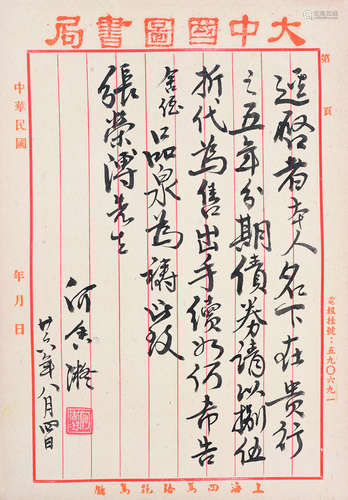 大中國圖書局
第 頁
逕啟者本人名下在貴行
之五年分期債券請以捌伍
折代為售出手續如何希告
舍侄品泉為禱此致
張榮溥先生
何香凝
廿六年八月四日
中華民國 年 月 日
電報掛號：五九〇六九一
上海四馬路